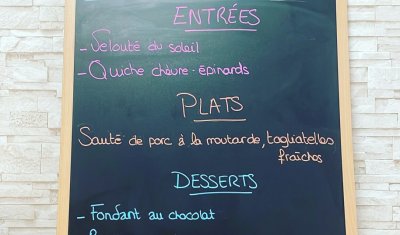 ENTRÉES
- Velouté du soleil
- Quiche chèvre-épinards
PLATS
Sauté de porc à la moutarde, tagliatelles
fraîches
DESSERTS
- Fondant au chocolat